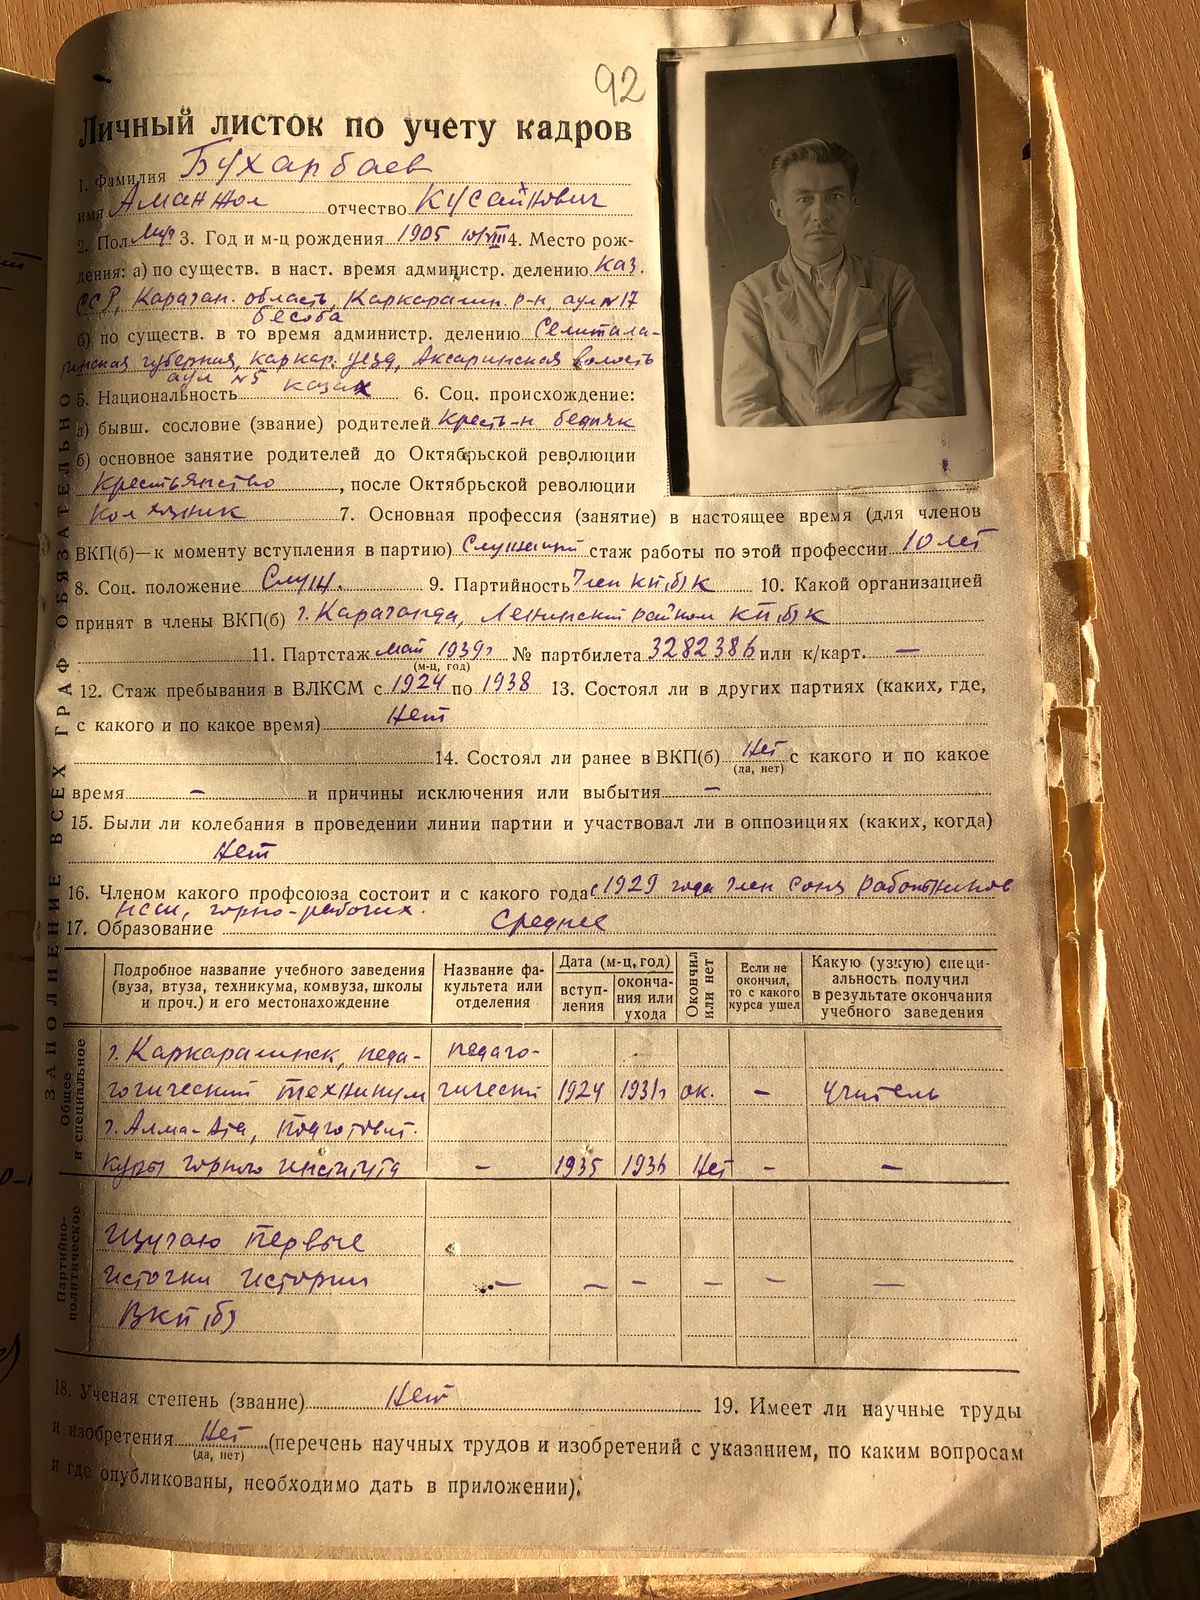 92
Личный листок по учету кадров
1. Фамилия Бухарбаев
имя Аманжол отчество Кусайнович
2. Пол Муж 3. Год и м-ц рождения 1905 10/VIII 4. Место рож-
дения: а) по существ. в наст. время администр. делению Каз.
ССР, Караган. область, Каркаралин. р-н, аул №17
Бесоба
б) по существ. в то время администр. делению Семипала-
тинская губерния, Каркар. уезд, Аксаринская волость
аул №5
5. Национальность казак 6. Соц. происхождение:
а) бывш. сословие (звание) родителей Крест-н бедняк
б) основное занятие родителей до Октябрьской революции
Крестьянство, после Октябрьской революции
Колхозник 7. Основная профессия (занятие) в настоящее время (для членов
ВКП(б)—к моменту вступления в партию) Служащий стаж работы по этой профессии 10 лет
8. Соц. положение Служ. 9. Партийность Член КП(б)К 10. Какой организацией
принят в члены ВКП(б) г. Караганда, Ленинский райком КП(б)К
11. Партстаж май 1939г № партбилета 3282386 или к/карт. —
(м-ц, год)
12. Стаж пребывания в ВЛКСМ с 1924 по 1938 13. Состоял ли в других партиях (каких, где,
с какого и по какое время) Нет
14. Состоял ли ранее в ВКП(б) Нет с какого и по какое
(да, нет)
время — и причины исключения или выбытия —
15. Были ли колебания в проведении линии партии и участвовал ли в оппозициях (каких, когда)
Нет
16. Членом какого профсоюза состоит и с какого года с 1929 года член союза работников
горно-рабочих.
17. Образование Среднее
ЗАПОЛНЕНИЕ ВСЕХ ГРАФ ОБЯЗАТЕЛЬНО
Подробное название учебного заведения (вуза, втуза, техникума, комвуза, школы и проч.) и его местонахождение
Название факультета или отделения
Дата (м-ц, год)
вступ-
ления
оконча-
ния или
ухода
Окончил
или нет
Если не
окончил,
то с какого
курса ушел
Какую (узкую) специ-
альность получил
в результате окончания
учебного заведения
Общее
и специальное
г. Каркаралинск, педа- педаго-
гогический техникум гический 1924 1931г ок. — учитель
г. Алма-Ата, подготовит.
курсы горного института — 1935 1936 Нет — —
Партийно-
политическое
Изучаю первые
источники истории — — — — — —
ВКП(б)
18. Ученая степень (звание) Нет 19. Имеет ли научные труды
и изобретения Нет (перечень научных трудов и изобретений с указанием, по каким вопросам
(да, нет)
и где опубликованы, необходимо дать в приложении).